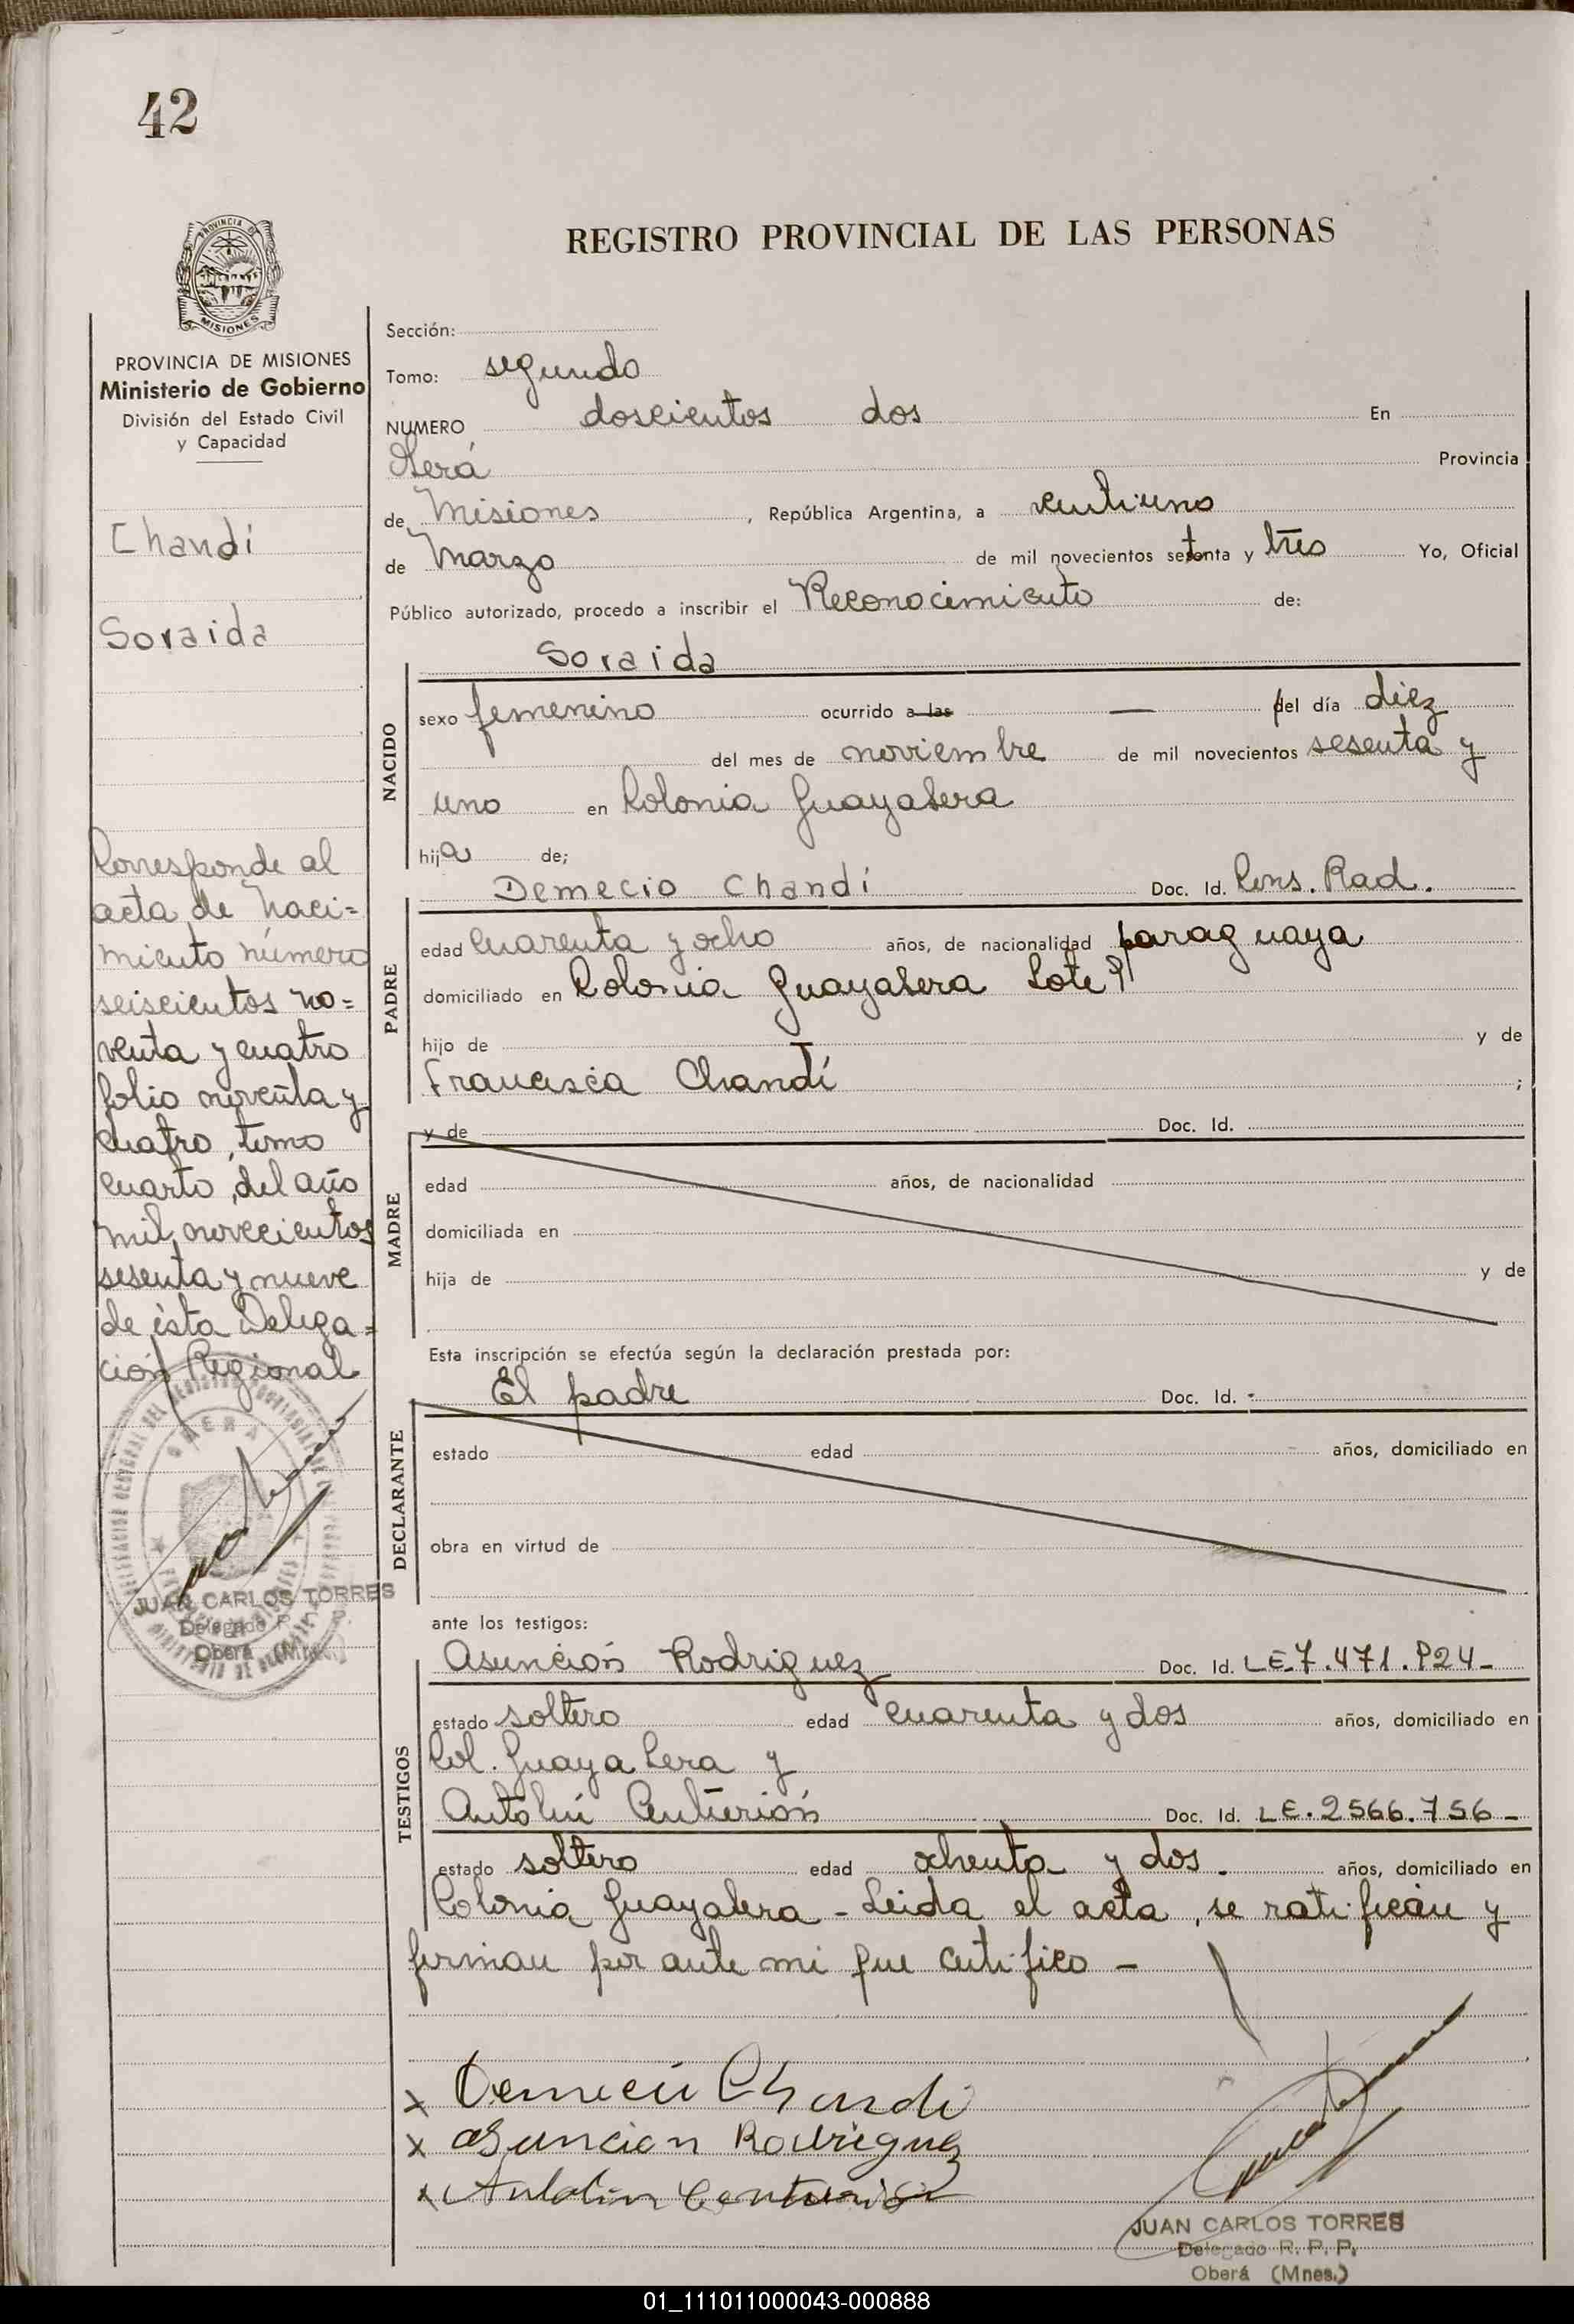 42
REGISTRO PROVINCIAL DE LAS PERSONAS
MISIONES
PROVINCIA DE MISIONES
Ministerio de Gobierno
División del Estado Civil
y Capacidad
Chandí
Soraida
Corresponde al
acta de Naci=
miento número
seiscientos no=
venta y cuatro
folio noventa y
cuatro, tomo
cuarto, del año
mil novecientos
sesenta y nueve
de ésta Delega=
ción Regional
JUAN CARLOS TORRES
Delegado R. P. P.
Oberá (Mnes.)
Sección:
Tomo: segundo
NUMERO doscientos dos En
Oberá Provincia
de Misiones, República Argentina, a ventiuno
de Marzo de mil novecientos setenta y tres Yo, Oficial
Público autorizado, procedo a inscribir el Reconocimiento de:
Soraida
NACIDO
sexo femenino ocurrido a las — del día diez
del mes de noviembre de mil novecientos sesenta y
uno en Colonia Guayabera
hija de;
Demecio Chandí Doc. Id. Cons. Rad.
PADRE
edad cuarenta y ocho años, de nacionalidad paraguaya
domiciliado en Colonia Guayabera Lote
hijo de y de
Francisca Chandí ;
y de Doc. Id.
MADRE
edad años, de nacionalidad
domiciliada en
hija de y de
Esta inscripción se efectúa según la declaración prestada por:
El padre Doc. Id. -
DECLARANTE
estado edad años, domiciliado en
obra en virtud de
ante los testigos:
Asunción Rodriguez Doc. Id. LE 7.471.924-
TESTIGOS
estado soltero edad cuarenta y dos años, domiciliado en
Col. Guayabera y
Antolín Centurión Doc. Id. LE. 2566.756-
estado soltero edad ochenta y dos. años, domiciliado en
Colonia Guayabera - Leida el acta, se ratifican y
firman por ante mi que certifico -
x Demecio Chandi
x asuncion Rodriguez
x Antolin Centurion
JUAN CARLOS TORRES
Delegado R. P. P.
Oberá (Mnes.)
01_111011000043-000888